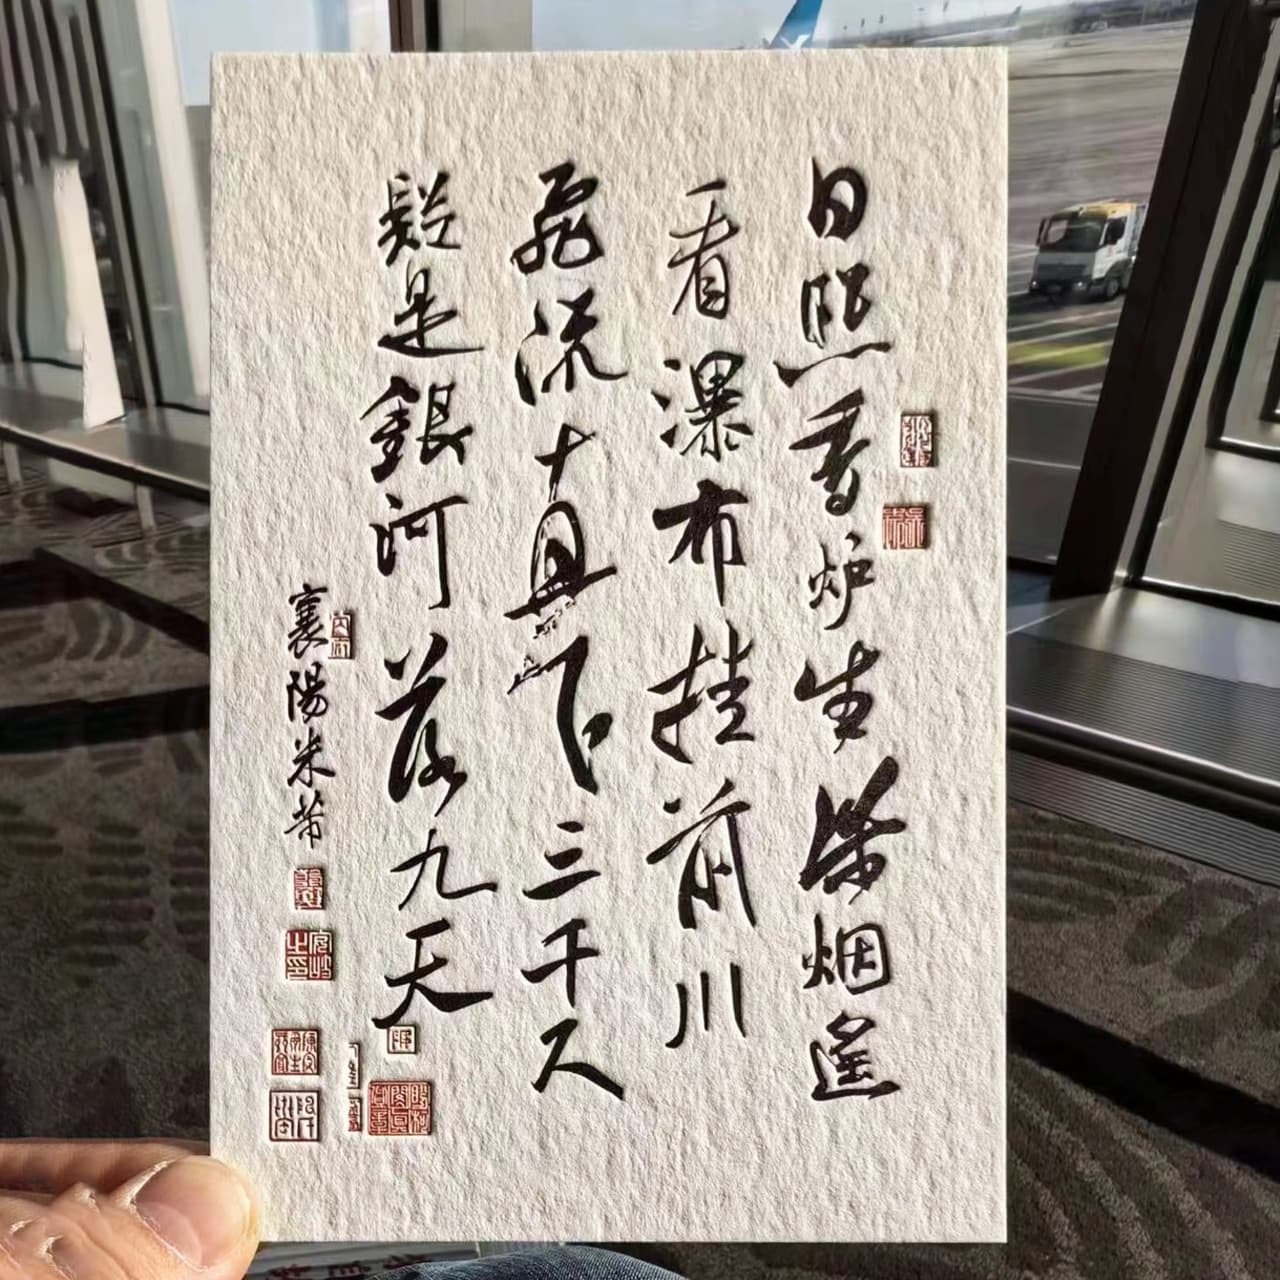 日照香炉生紫烟遙
看瀑布挂前川
飛流直下三千尺
疑是銀河落九天
襄陽米芾